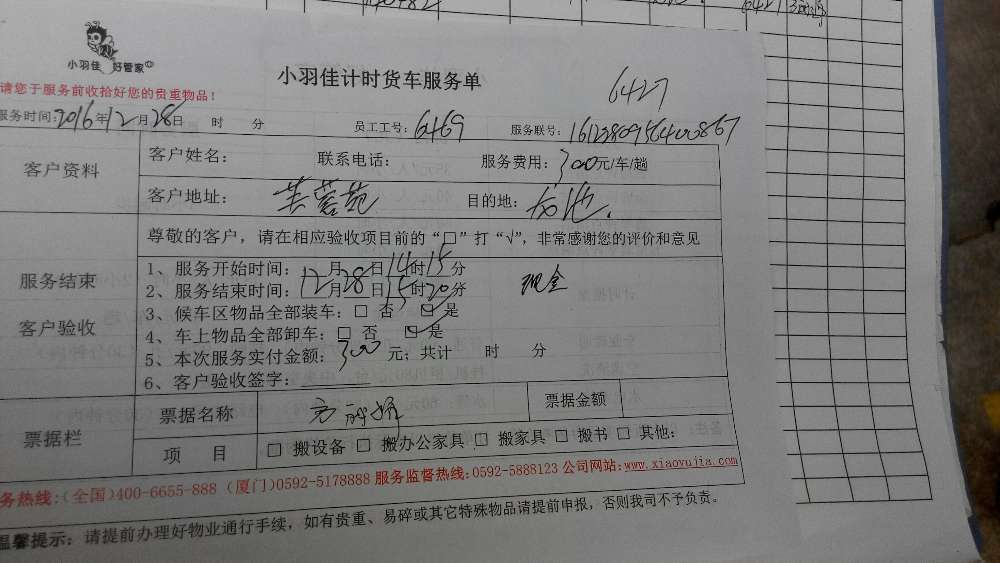 小羽佳 好管家
小羽佳计时货车服务单
6427
请您于服务前收拾好您的贵重物品！
服务时间：2016年12月28日 时 分 员工工号：6469 服务联号：1612280956400867
客户资料
客户姓名： 联系电话： 服务费用：300元/车/趟
客户地址：芙蓉苑 目的地：
尊敬的客户，请在相应验收项目前的“□”打“√”，非常感谢您的评价和意见
服务结束
客户验收
1、服务开始时间：12月28日14时15分
现金
2、服务结束时间：12月28日15时20分
3、候车区物品全部装车：□ 否 ☑ 是
4、车上物品全部卸车：□ 否 ☑ 是
5、本次服务实付金额：300元；共计 时 分
6、客户验收签字：
票据栏
票据名称 票据金额
项 目 □ 搬设备 □ 搬办公家具 □ 搬家具 □ 搬书 □ 其他：
务热线：(全国)400-6655-888 (厦门)0592-5178888 服务监督热线：0592-5888123 公司网站：www.xiaoyujia.com
温馨提示：请提前办理好物业通行手续，如有贵重、易碎或其它特殊物品请提前申报，否则我司不予负责。